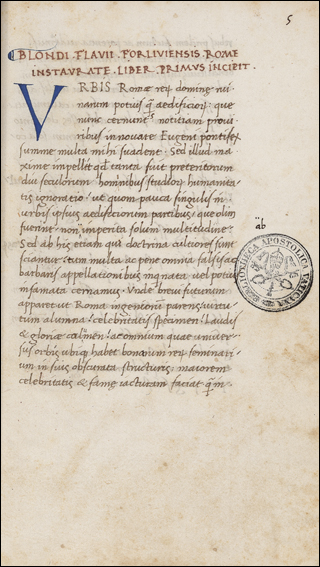 5
BLONDI FLAVII FORLIVIENSIS ROME
INSTAURATE LIBER PRIMVS INCIPIT.
VRBIS Romæ rerum dominæ rui
narum potius q̃ ædificiorum que
nunc cernuntur notitiam pro uiri
ribus innouare Eugeni pontifex
summe multa mihi suadent. Sed illud ma
xime impellit qd tanta fuit preteritorum
diu seculorum hominibus studiorum humanita
tis ignoratio: ut quom pauca singulis in
urbis ipsius aedificiorum partibus: que olim
fuerint: non imperita solum multitudine:
Sed ab his etiam qui doctrina cultiores sunt
sciantur: tum multa ac pene omnia falsis ac
barbaris appellationibus inquinata uel potius
infamata cernamus. Vnde breui futurum
apparet ut Roma ingeniorum parens: uirtu
tum alumna: celebritatis specimen: Laudis
& gloriæ columen: ac omnium quae uniuer
sus orbis ubiq habet bonorum rerum seminari
um in suis obscurata structuris: maiorem
celebritatis & famę iacturam faciat q̃ in
BIBLIOTHECA APOSTOLICA VATICANA